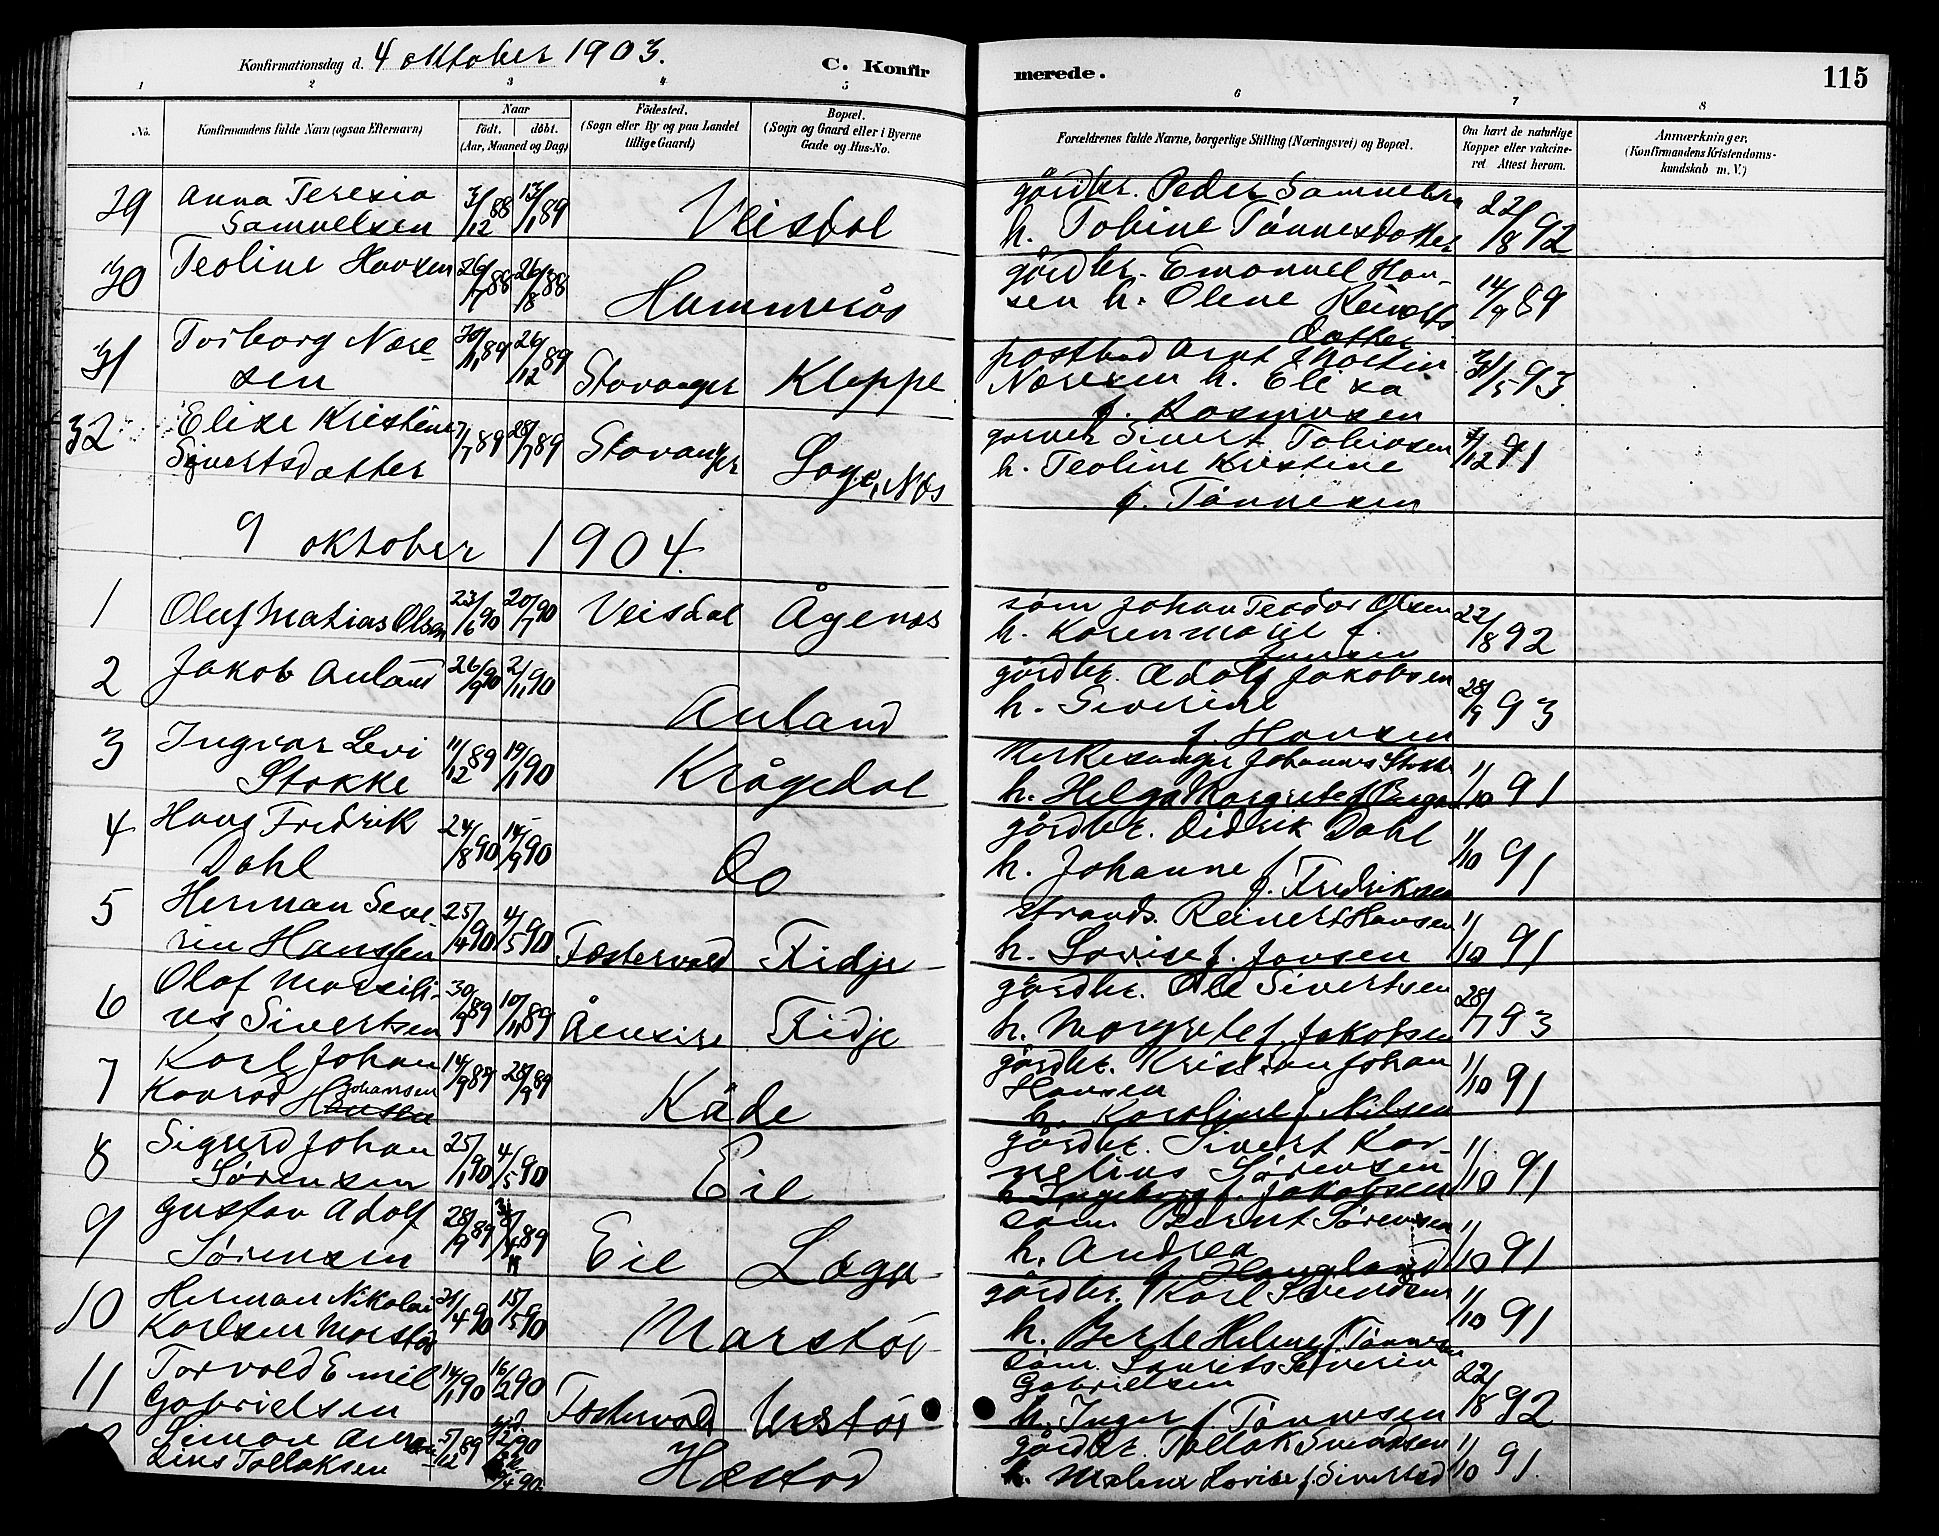 Konfirmationsdag d. 4 oktober 1903.
C. Konfirmerede.
115
1 2 3 4 5 6 7 8
No.
Konfirmandens fulde Navn (ogsaa Efternavn)
Naar
födt. döbt.
(Aar, Maaned og Dag)
Födested.
(Sogn eller By og paa Landet
tillige Gaard)
Bopæl.
(Sogn og Gaard eller i Byerne
Gade og Hus-No.
Forældrenes fulde Navne, borgerlige Stilling (Næringsvei) og Bopæl.
Om havt de naturlige
Kopper eller vakcine-
ret Attest herom.
Anmærkninger,
(Konfirmandens Kristendoms-
kundskab m. V.)
29 Anna Teresia 3/12 88 13/1 89 Veisdal gårdbr. Peder Samuelsen 22/8 92
Samuelsen h. Tobine Tønnesdatter
30 Teoline Hansen 26/7 88 26/8 88 Hummeràs gårdbr. Emanuel Han- 14/9 89
sen h. Olene Reinertsdatter
31 Torborg Nære- 30/11 89 26/12 89 Stavanger Kleppe postbud Arnt Martin 31/5 93
sen Næresen h. Elisa
f. Rasmusen
32 Elise Kristine 7/7 89 28/7 89 Stavanger Loge, Nes garver Sivert Tobiasen 4/12 91
Sivertsdatter h. Teoline Kristine
f. Tønnesen
9 oktober 1904.
1 Oluf Matias Olsen 23/6 90 20/7 90 Veisdal Ågenes søm Johan Teodor Olsen 22/8 92
h. Karen Marie f.
Jansen
2 Jakob Anland 26/9 90 2/11 90 Anland gårdbr. Adolf Jakobsen 28/9 93
h. Siverine
f. Hansen
3 Ingvar Levi 11/12 89 19/1 90 Krågedal Kirkesanger Johannes Stokke 1/10 91
Stokke h. Helga Margrete f.
4 Hans Fredrik 24/8 90 14/9 90 do gårdbr. Didrik Dahl 1/10 91
Dahl h. Johanne f. Fredriksen
5 Herman Seve- 25/4 90 4/5 90 Fedtervold Fidje strands. Reinert Hansen 1/10 91
rin Hanssen h. Lovise f. Jansen
6 Olaf Marseli- 30/9 89 10/11 89 Åensire Fidje gårdbr. Ole Sivertsen 28/7 93
us Sivertsen h. Margrete f. Jakobsen
7 Karl Johan 14/9 89 28/9 89 Kåde gårdbr. Kristian Johan 1/10 91
Konrad Johansen Hansen Hansen
h. Karoline f. Nilsen
8 Sigurd Johan 25/1 90 4/5 90 Eie gårdbr. Sivert Kor- 1/10 91
Sørensen nelius Sørensen
h. Ingeborg f. Jakobsen
9 Gustav Adolf 28/9 89 89 Eie Loge søm. Bernt Sørensen 1/10 91
Sørensen h. Andrea
f. Haugland
10 Herman Nikolai 21/4 90 15/5 90 Marstør gårdbr. Karl Svendsen 1/10 91
Karlsen Marstør h. Berte Helene f. Tønnesen
11 Torvald Emil 14/1 90 16/2 90 Fedtervold Urstør søm. Laurits Severin 22/8 92
Gabrielsen Gabrielsen
h. Inger f. Tønnesen
Simon 5/12 89 90 Hæstad gårdbr. Tollak Svendsen 1/10 91
Tollaksen h. Malene Lovise f. Sivertsd